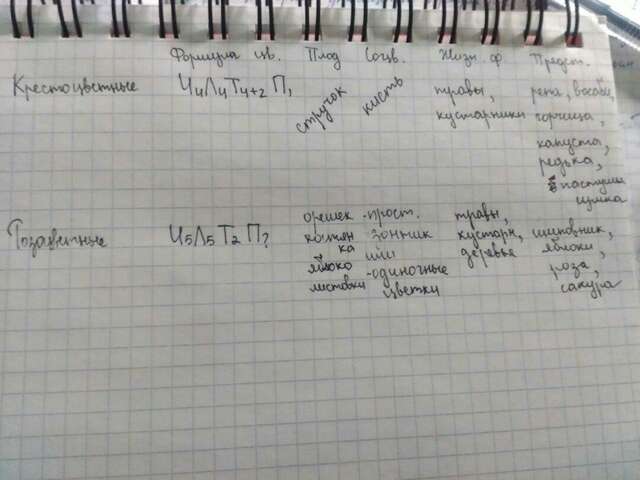 Формула цв. Плод Соцв. Жизн. ф. Предст.
Крестоцветные Ч4Л4Т4+2 П1 стручок кисть травы, репа, васаби,
кустарники горчица,
капуста,
редька,
пастушья
сумка
орешек -прост. травы,
Розаветные Ч5Л5Т2 П? костян зонтик кустарн, шиповник,
ка или деревья яблоки,
яблоко -одиночные роза,
листовки цветки сакура